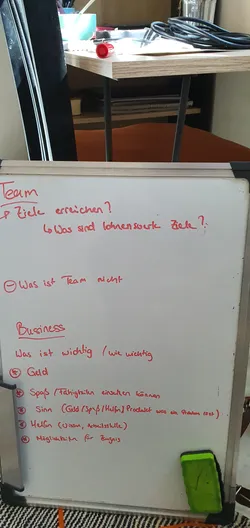 Team
Ziele erreichen?
↳ Was sind lohnenswerte Ziele?
⊖ Was ist Team nicht
Business
Was ist wichtig / wie wichtig
Geld
Spaß / Fähigkeiten einsetzen können
Sinn (Geld/Spaß/Helfen/Produkt was
Helfen
Möglichkeiten für